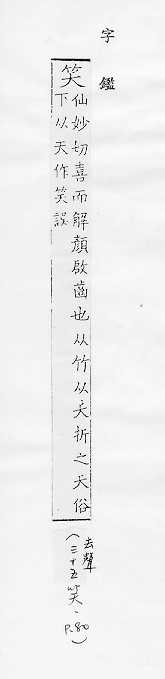 字鑑
笑
仙妙切喜而解顏啟齒也从竹从夭折之夭俗
下从天作笑誤
去聲
(三十五笑、P.80)